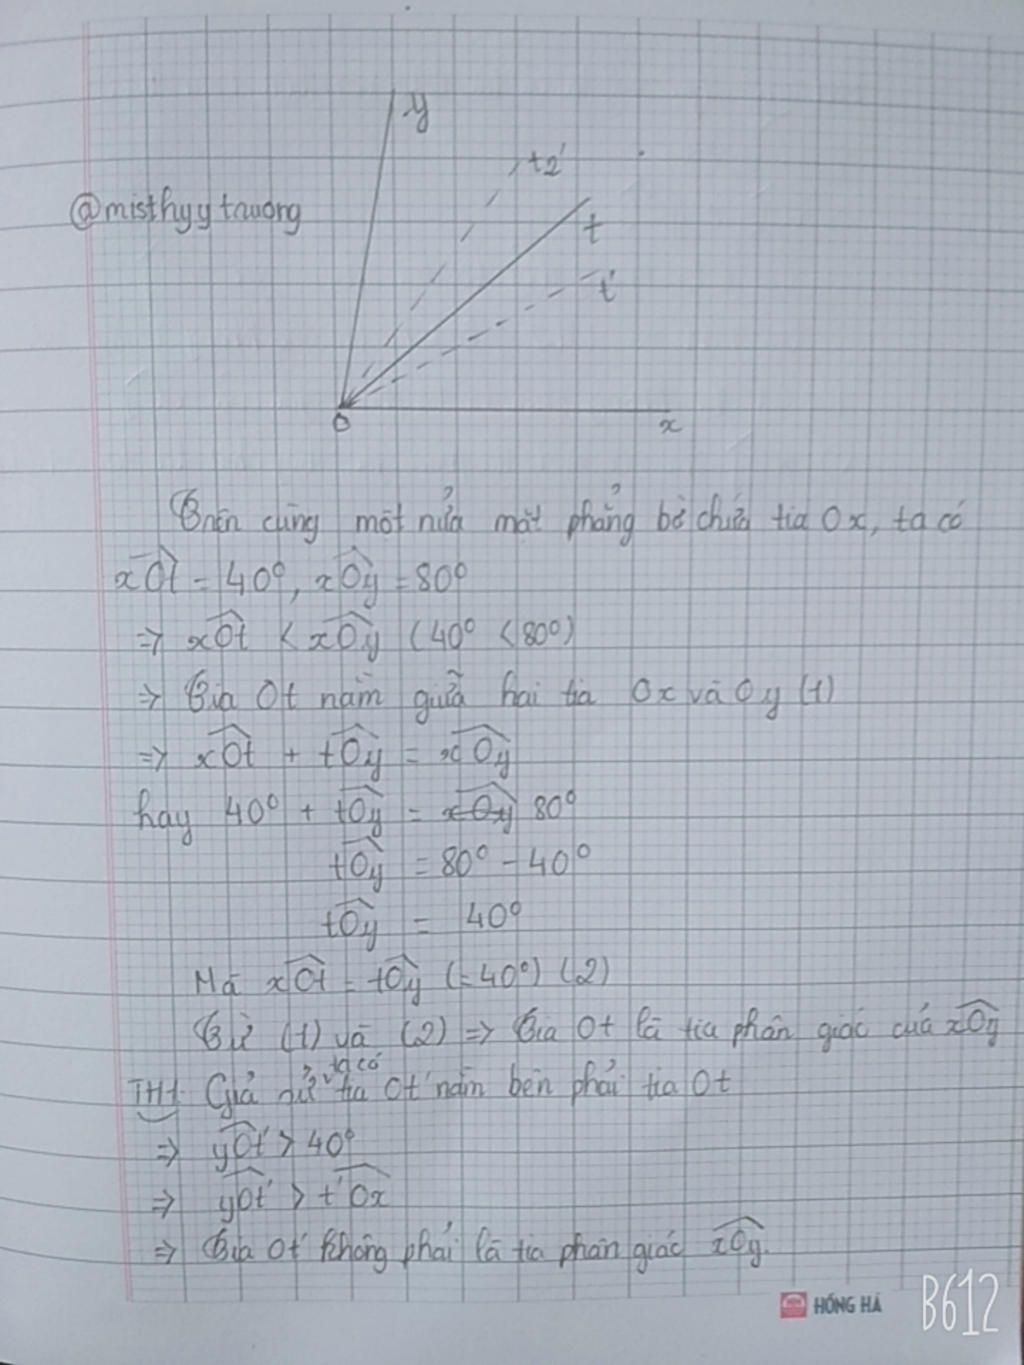 y
t2'
@misthyytruong
t
t'
O
x
Trên cùng một nửa mặt phẳng bờ chứa tia Ox, ta có
xOt = 40°, xOy = 80°
=> xOt < xOy (40° < 80°)
=> Tia Ot nằm giữa hai tia Ox và Oy (1)
=> xOt + tOy = xOy
hay 40° + tOy = xOy 80°
tOy = 80° - 40°
tOy = 40°
Mà xOt = tOy (=40°) (2)
Từ (1) và (2) => Tia Ot là tia phân giác của xOy
ta có
TH1: Giả sử tia Ot' nằm bên phải tia Ot
=> yOt' > 40°
=> yOt' > t'Ox
=> Tia Ot' không phải là tia phân giác xOy.
HỒNG HÀ
B612